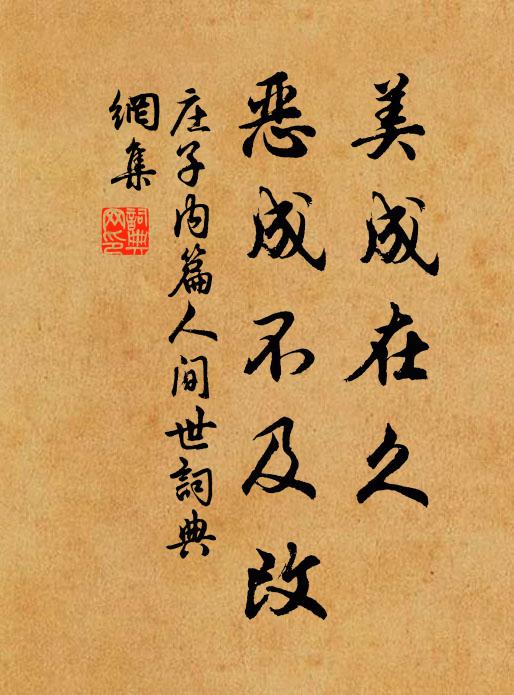 美成在久
惡成不及改
庄子內篇人间世詞典
網集
詞典
网印